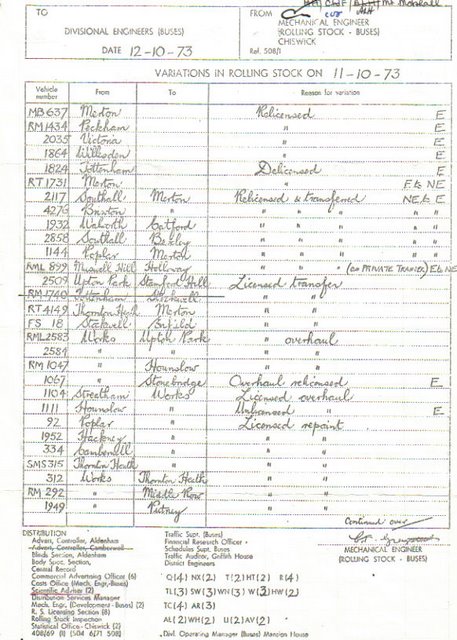 TO
DIVISIONAL ENGINEERS (BUSES)
DATE 12-10-73
FROM
MECHANICAL ENGINEER
(ROLLING STOCK - BUSES)
CHISWICK
Ref. 508/1
VARIATIONS IN ROLLING STOCK ON 11-10-73
Vehicle number From To Reason for variation
MB 637 Merton Relicensed E
RM 1434 Peckham " E
2035 Victoria " E
1864 Willesden " E
1824 Tottenham Delicensed E
RT 1731 Merton " E & NE
2117 Southall Merton Relicensed & transferred NE & E
4276 Brixton " " " "
1932 Walworth Catford " " " "
2858 Southall Bexley " " " "
1144 Poplar Merton " " " "
RML 899 Muswell Hill Holloway " " " (as PRIVATE TRAINER) E & NE
2509 Upton Park Stamford Hall Licensed transfer
RM 1740 Sydenham Stockwell " "
RT 4149 Thornton Heath Merton " "
FS 18 Stockwell Enfield " "
RML 2583 Works Upton Park " overhaul
2584 " " " "
RM 1047 " Hounslow " "
1067 " Stonebridge Overhaul relicensed E
1104 Streatham Works Licensed overhaul
1111 Hounslow " Unlicensed " E
92 Poplar " Licensed repaint
1952 Hackney " " "
334 Camberwell " " "
SMS 315 Thornton Heath " " "
312 Works Thornton Heath " "
RM 292 " Middle Row " "
1949 " Putney " "
Continued over
MECHANICAL ENGINEER
(ROLLING STOCK - BUSES)
DISTRIBUTION
Advert. Controller, Aldenham
Advert. Controller, Camberwell
Blinds Section, Aldenham
Body Supt. Section,
Central Record
Commercial Advertising Officer (6)
Costs Office (Mech. Engr.-Buses)
Scientific Adviser (2)
Distribution Services Manager
Mech. Engr. (Development - Buses) (2)
R. S. Licensing Section (8)
Rolling Stock Inspection
Statistical Office - Chiswick (2)
408/69 (1) (504 6/71 508)
Traffic Supt. (Buses)
Financial Research Officer
Schedules Supt. Buses
Traffic Auditor, Griffith House
District Engineers
Q(4) NX(2) T(2) HT(2) R(4)
TL(3) SW(3) WN(3) W(3) HW(2)
TC(4) AR(3)
AL(2) WH(2) U(2) AV(2)
Divl. Operating Manager (Buses) Mansion House